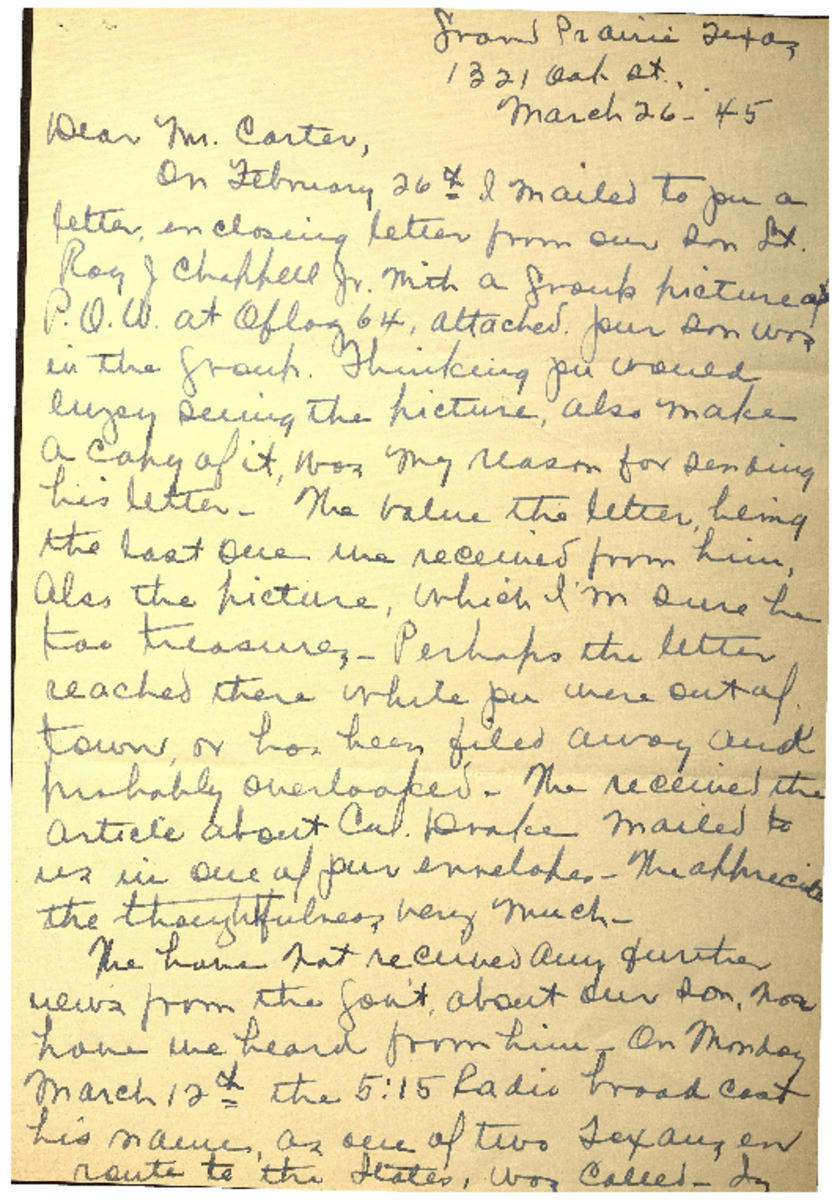 Grand Prairie Texas
1321 Oak st.
March 26 - 45
Dear Mr. Carter,
On February 26th I mailed to you a
letter, enclosing letter from our son Lt.
Roy J Chappell Jr. with a group picture of
P.O.W. at Oflag 64, attached. your son was
in the group. Thinking you would
enjoy seeing the picture, also make
a copy of it, was my reason for sending
his letter - We value the letter, being
the last one we received from him,
Also the picture, which I'm sure he
too treasures - Perhaps the letter
reached there while you were out of
town, or has been filed away and
probably overlooked - We received the
article about Col. Drake mailed to
us in one of your envelopes - We appreciate
the thoughtfulness very much -
We have not received any further
news from the Gov't, about our son, nor
have we heard from him - On Monday
March 12th the 5:15 Radio broad cast
his name, as one of two Texans, en
route to the States, was called -